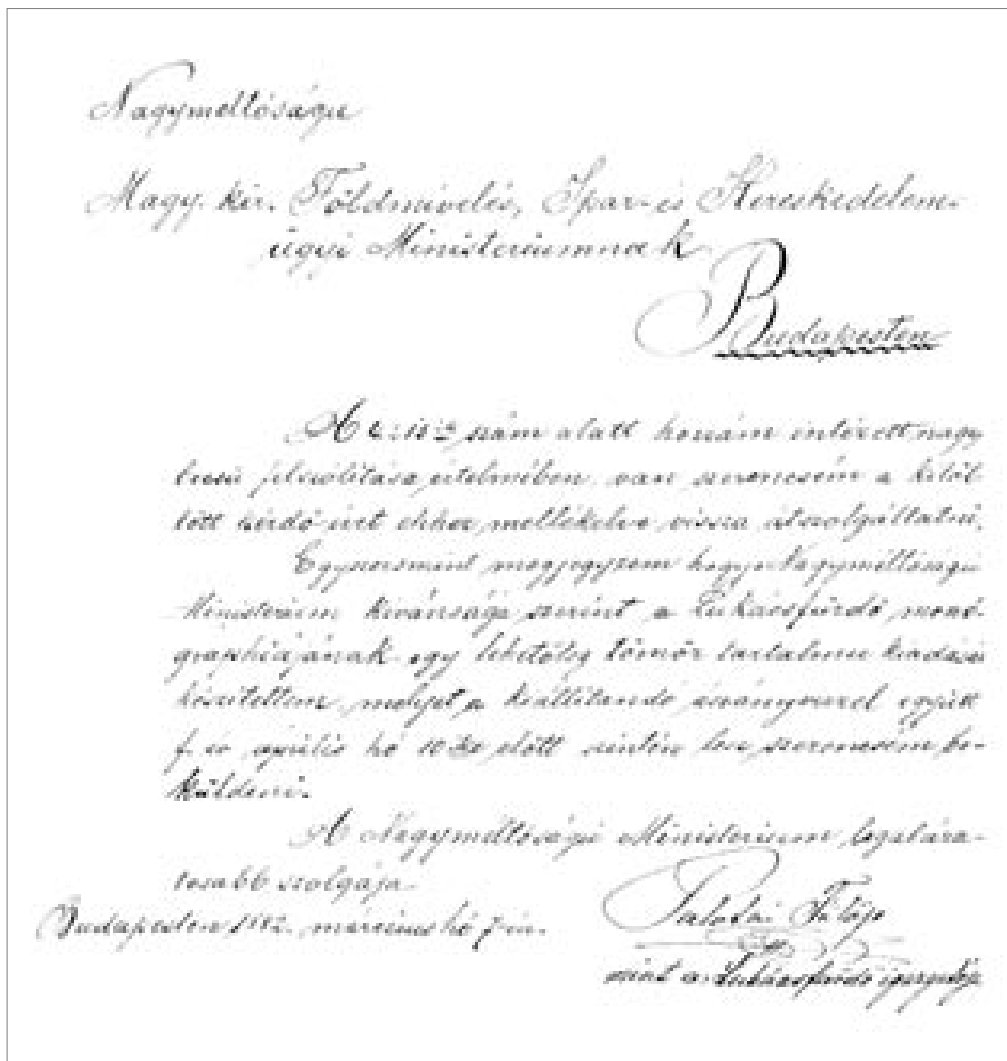 Nagyméltóságu
Magy. kir. Földmivelés, Ipar- és Kereskedelem-
ügyi Ministeriumnak
Budapesten
A szám alatt hozzám intézett nagy
becsü felszólitása értelmében, van szerencsém a kitöl-
tött kérdő ivet ehhez mellékelve vissza átszolgáltatni.
Egyszersmint megjegyzem hogy Nagyméltóságu
Ministerium kivánsága szerint a Lukácsfürdő mono-
graphiájának egy lehetőleg tömör tartalmu kiadását
készitettem, melyet a kiállitandó ásványvizzel együtt
f. év április hó előtt szintén lesz szerencsém be-
küldeni.
A Nagyméltóságu Ministerium legaláza-
tosabb szolgája
Budapesten 1882. márczius hó 7-én.
Palotai Fülöp
mint a Lukácsfürdő